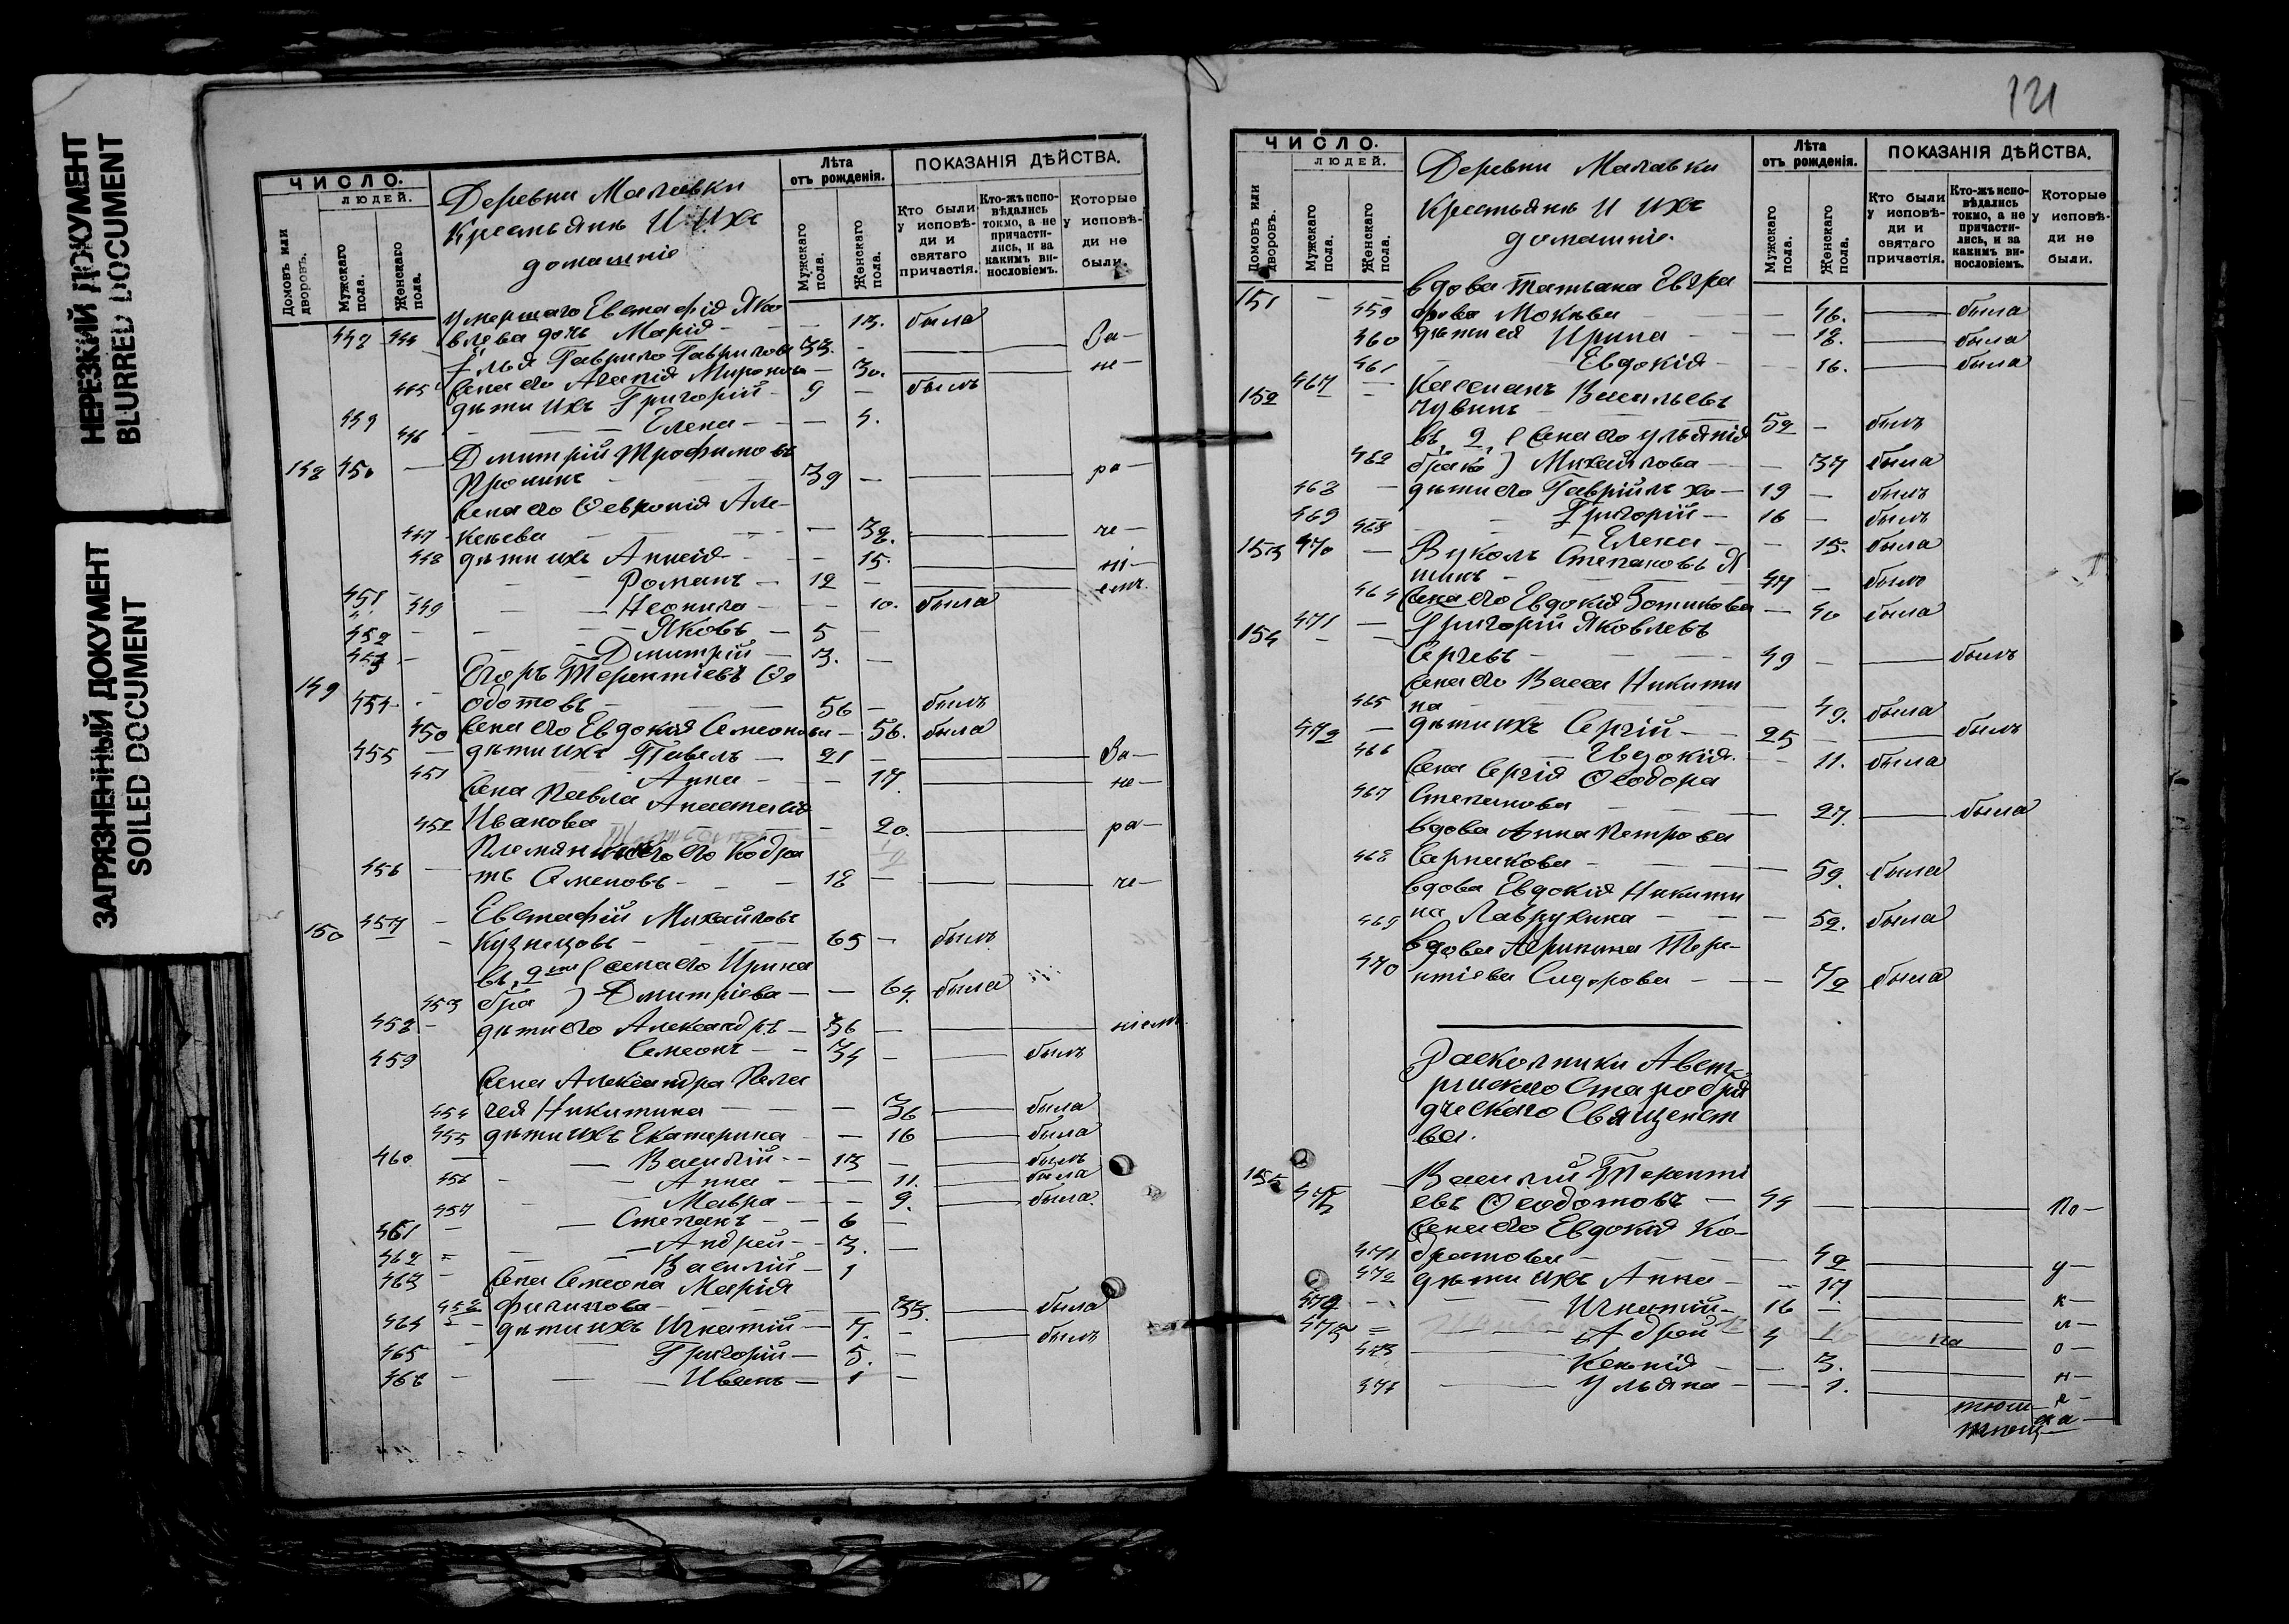 НЕРЕЗКИЙ ДОКУМЕНТ
BLURRED DOCUMENT
ЗАГРЯЗНЕННЫЙ ДОКУМЕНТ
SOILED DOCUMENT
ЧИСЛО.
ЛЮДЕЙ.
Домовъ или дворовъ.
Мужскаго пола.
Женскаго пола.
Деревни Малавки
Крестьянъ И Ихъ
домашніе
Лѣта
отъ рожденія.
Мужскаго пола.
Женскаго пола.
ПОКАЗАНІЯ ДѢЙСТВА.
Кто были у исповѣди и святаго причастія.
Кто-жъ исповѣдались токмо, а не причастились, и за какимъ винословіемъ.
Которые у исповѣди не были.
умершаго Евстафія Яко
448 444 влева дочь Марія - 13. была
Гаврило Гавриловъ 33. - За-
445 жена его Агапія Миронова - 30. не-
449 дѣти ихъ Григорій - 9 - былъ
446 Елена - - 4.
148 450 - Дмитрій Трофимовъ
Пронинъ 39 - ра-
жена его Февронія Але-
447 ксѣева - 32. че-
448 дѣти ихъ Анисія - 15. ні-
451 Романъ - 12 - емъ.
449 Неонила - - 10. была
452 - Яковъ - 5 -
453 - Дмитрій - 3. -
149 Егоръ Терентіевъ Ѳе
454 - одотовъ - 56 - былъ
450 жена его Евдокія Семенова - 56. была
455 - дѣти ихъ Павелъ - 21 - За-
451 Анна - - 17. не-
жена Павла Анастасія
452 Иванова - 20. ра-
Племянникъ его Кодра
456 - тъ Семеновъ - 18 - че-
150 457 - Евстафій Михайловъ
- Кузнецовъ - 65 - былъ
въ 2мъ жена его Ирина
453 бра Дмитріева - - 64. была
458 - дѣти его Александръ - 36 - ніемъ
459 Семеонъ - 34 - былъ
жена Александра Пела
454 гея Никитина - - 36 была
455 дѣти ихъ Екатерина - - 16 была
460 - Василій - 13 - былъ
456 - Анна - - 11. была
457 - Мавра - - 9. была
461 - Степанъ - 6 -
462 - Андрей - 3. -
463 - Василій - 1
жена Семеона Марія
458 Филипова - - 33. была
464 - дѣти ихъ Игнатій - 7. - былъ
465 Григорій - 5. -
466 - Иванъ - 1 -
121
ЧИСЛО.
ЛЮДЕЙ.
Домовъ или дворовъ.
Мужскаго пола.
Женскаго пола.
Деревни Малавки
Крестьянъ И ихъ
домашніе.
Лѣта
отъ рожденія.
Мужскаго пола.
Женскаго пола.
ПОКАЗАНІЯ ДѢЙСТВА.
Кто были у исповѣди и святаго причастія.
Кто-жъ исповѣдались токмо, а не причастились, и за какимъ винословіемъ.
Которые у исповѣди не были.
151 - вдова Татьана Евгра
459 фова Мокѣва - 46. была
460 дѣти ея Ирина - - 18. была
461 Евдокія - 16. была
152 467 - Кассианъ Васильевъ
Чувинъ 52 - былъ
въ 2 жена его Ульянія
462 бракѣ Михайлова - - 37 была
468 - дѣти его Гавріилъ хо- 19 - былъ
469 Григорій - 16 - былъ
463 Елена - - 15. была
153 470 - Вуколъ Степановъ Я
шинъ - 47 - былъ
464 жена его Евдокія Зотикова - 40 была
154 471 - Григорій Яковлевъ
Сергѣвъ - 49 - былъ
жена его Васса Никити
465 на - 49. была
472 - дѣти ихъ Сергій - 25 - былъ
466 Евдокія. - 11. была
жена Сергія Ѳеодора
467 Степанова - 27. была
вдова Анна Петрова
468 Сарпикова - 59. была
вдова Евдокія Никити
469 на Лаврухина - 52. была
вдова Агрипина Тере-
470 нтіева Сидорова - - 72 была
Раскольники Авст-
рискаго Старобря
дческаго Священст
ва.
155 Василій Теренті
473 евъ Ѳеодотовъ - 44 - По-
жена его Евдокія Ко-
471 дратова - 42 у-
472 дѣти ихъ Анна - - 17. к-
474 - Игнатій - 16 - л-
475 = Адрей 4 о-
473 Ксенія - 3. н-
474 Ульяна - - 1. я-